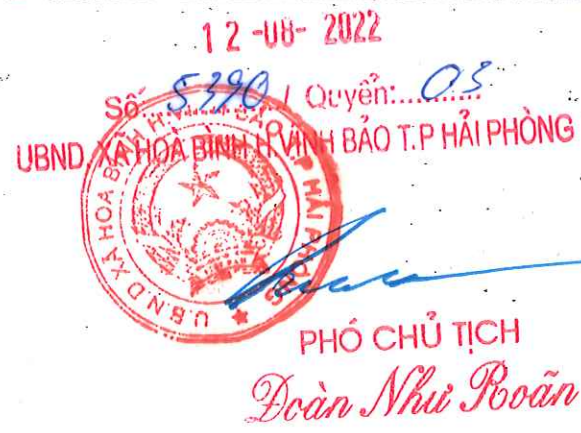 12-08-2022
Số 5390 / Quyển: 03
UBND. XÃ HOÀ BÌNH H.VĨNH BẢO T.P HẢI PHÒNG
U.B.N.D XÃ HOÀ BÌNH H. P HẢI PHÒNG
PHÓ CHỦ TỊCH
Đoàn Như Roãn